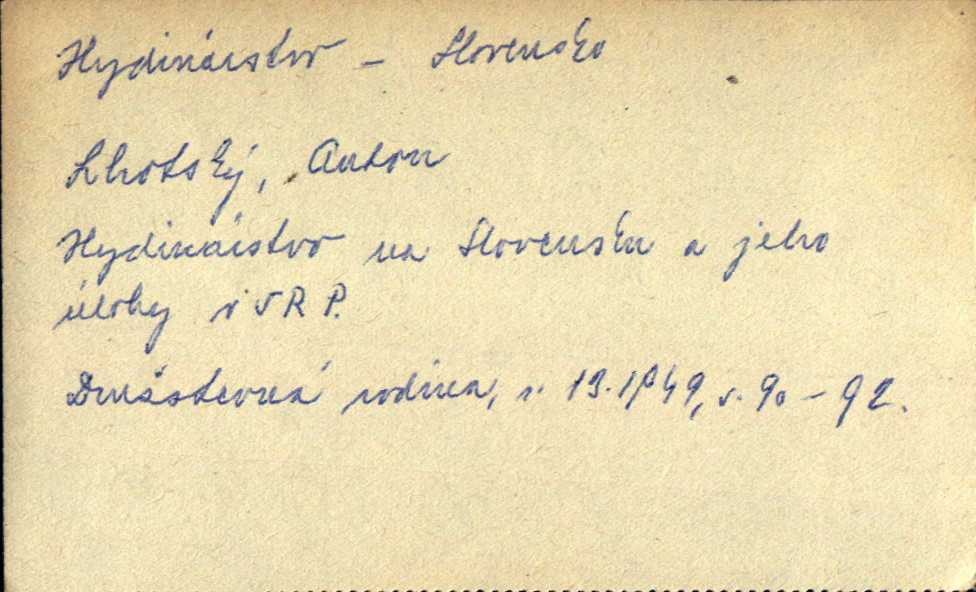 Hydinárstvo – Slovensko
Lhotský, Anton
Hydinárstvo na Slovensku a jeho
úlohy v 5 R P.
Družstevná rodina, r. 13. 1949, s. 90 – 92.